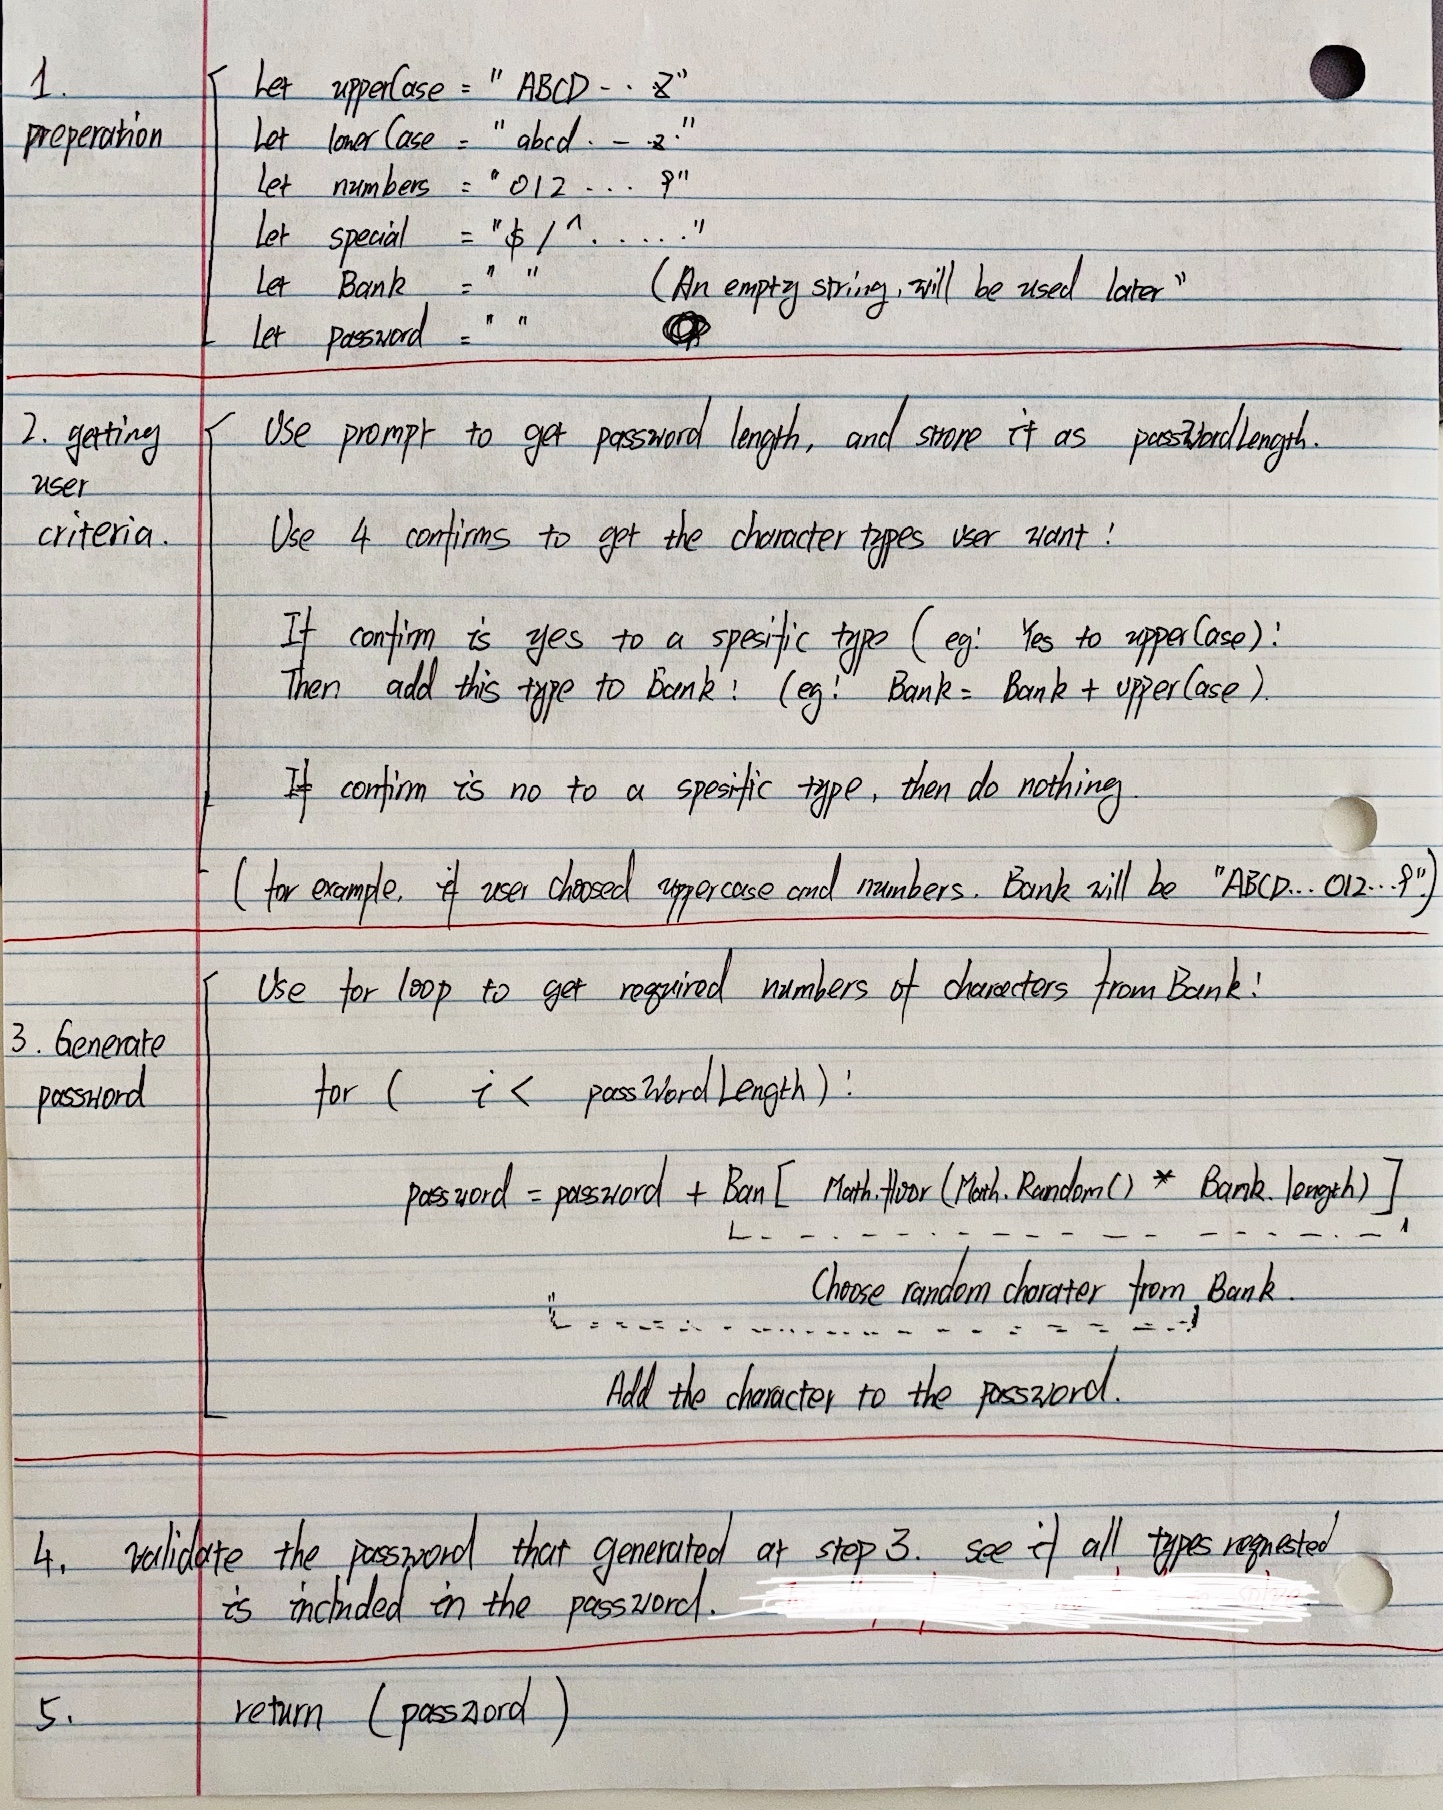 1.
preperation
Let upperCase = " ABCD - . . Z"
Let lowerCase = " abcd . - . z."
Let numbers = " 012 . . . . 9"
Let special = "$ / ^ . . . . . ."
Let Bank = " " (An empty string, will be used later"
Let password = " "
2. getting
user
criteria.
Use prompt to get password length, and store it as passWordLength.
Use 4 confirms to get the character types user want :
If confirm is yes to a spesific type ( eg: Yes to upperCase) :
Then add this type to Bank : (eg: Bank = Bank + upperCase ).
If confirm is no to a spesific type, then do nothing.
( for example, if user choosed uppercase and numbers. Bank will be "ABCD... 012...9".)
3. Generate
password
Use for loop to get required numbers of characters from Bank :
for ( i < passWordLength) :
password = password + Ban [ Math.floor (Math.Random() * Bank.length) ]
Choose random charater from Bank.
Add the character to the password.
4. validate the password that generated at step 3. see if all types requested
is included in the password.
5. return ( password )